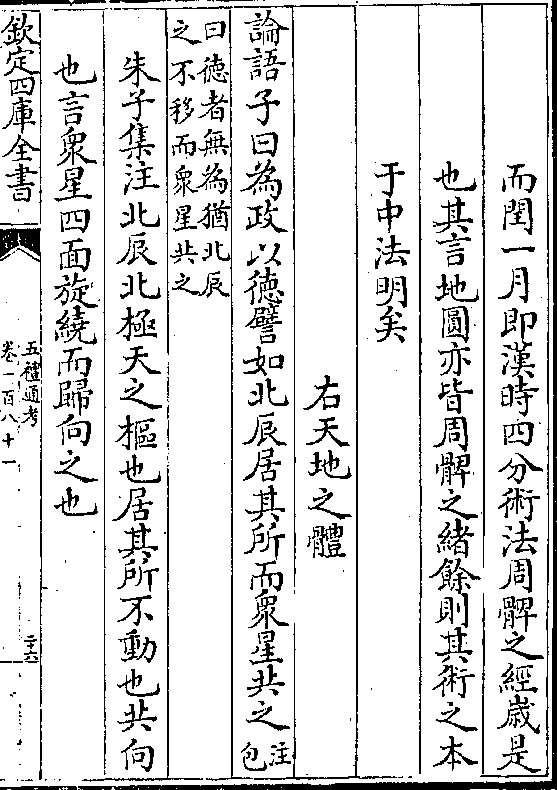 而閏一月即漢時四分術法周髀之經歲是
也其言地圓亦皆周髀之緒餘則其術之本
于中法明矣
右天地之體
論語子曰為政以德譬如北辰居其所而衆星共之注包
曰德者無為猶北辰
之不移而衆星共之
朱子集注北辰北極天之樞也居其所不動也共向
也言衆星四面旋繞而歸向之也
欽定四庫全書
五禮通考
卷一百八十一
二六